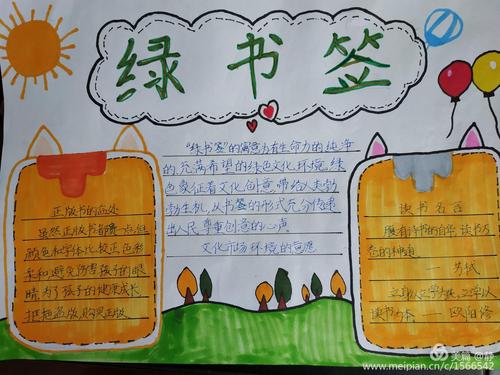 绿书签
"绿书签"的寓意为有生命力的纯净
的,充满希望的绿色文化环境,绿
色象征着文化创意,带给人无勃
勃生机,从书签的形式充分传递
出人民尊重创意的心声
文化市场环境的意愿
正版书的益处
虽然正版书都贵一点,但
颜色和字体比较正,色彩
柔和,避免伤害孩子的眼
睛,为了孩子的健康成长,
拒绝盗版,购买正版.
读书名言
腹有诗书气自华,读书万
卷
—— 苏轼
立身以立学为先,立学以
读书为本 —— 欧阳修
美篇 @静
www.meipian.cn/c/1566542